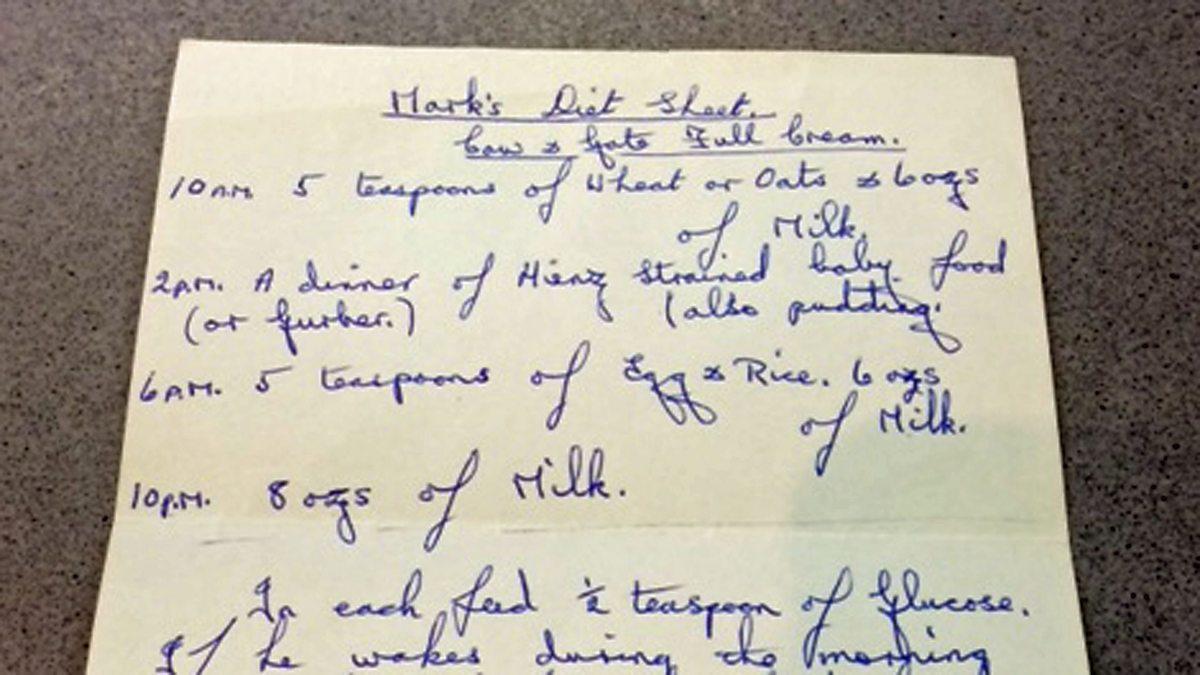 Mark's Diet Sheet.
Cow & Gate Full Cream.
10 A.M. 5 teaspoons of Wheat or Oats & 6 ozs
of Milk.
2 P.M. A dinner of Hienz strained baby food
(or Gurber.) (also pudding.
6 P.M. 5 teaspoons of Egg & Rice. 6 ozs
of Milk.
10 P.M. 8 ozs of Milk.
In each feed ½ teaspoon of Glucose.
If he wakes during the morning